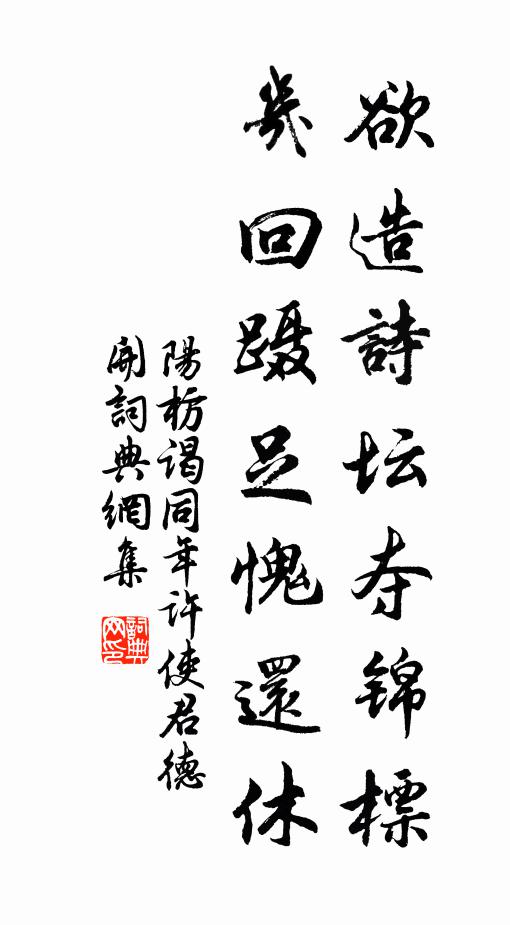 欲造詩坛夺锦標
幾回蹑足愧還休
陽枋谒同年许使君德
開詞典網集
詞典
网印